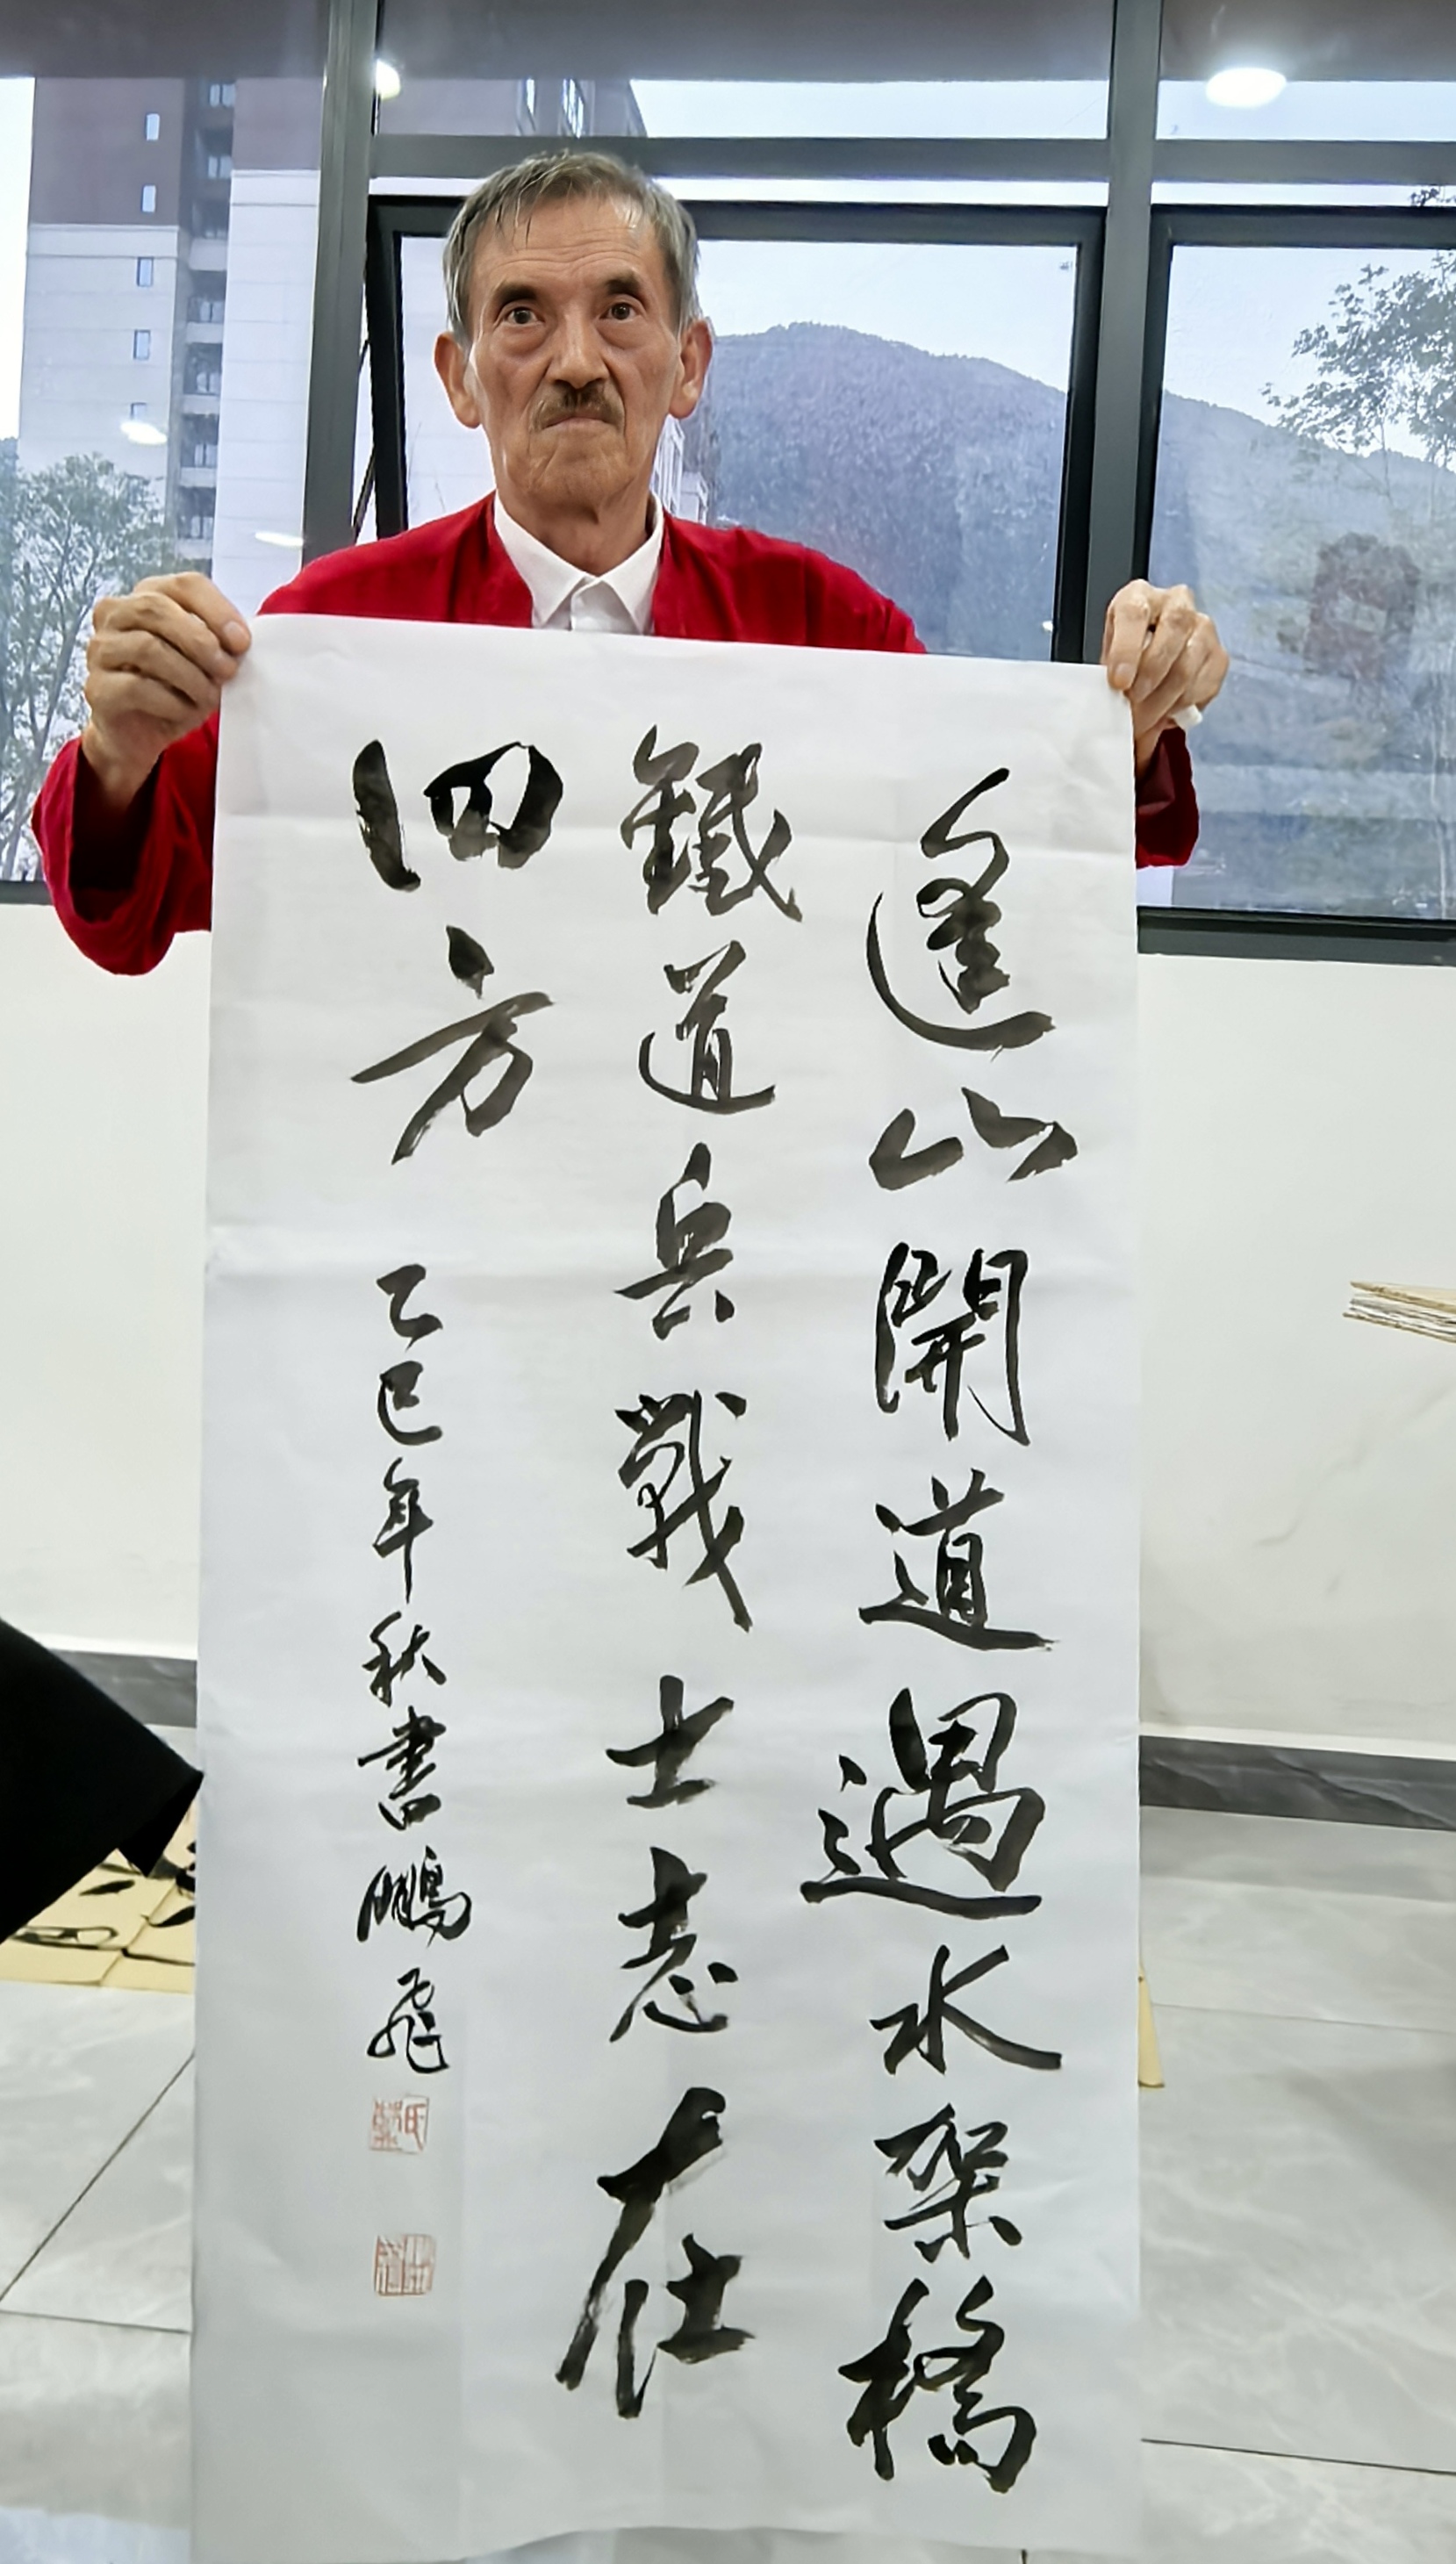 逢山開道遇水架橋
鐵道兵戰士志在
四方
乙巳年秋書鵬飛